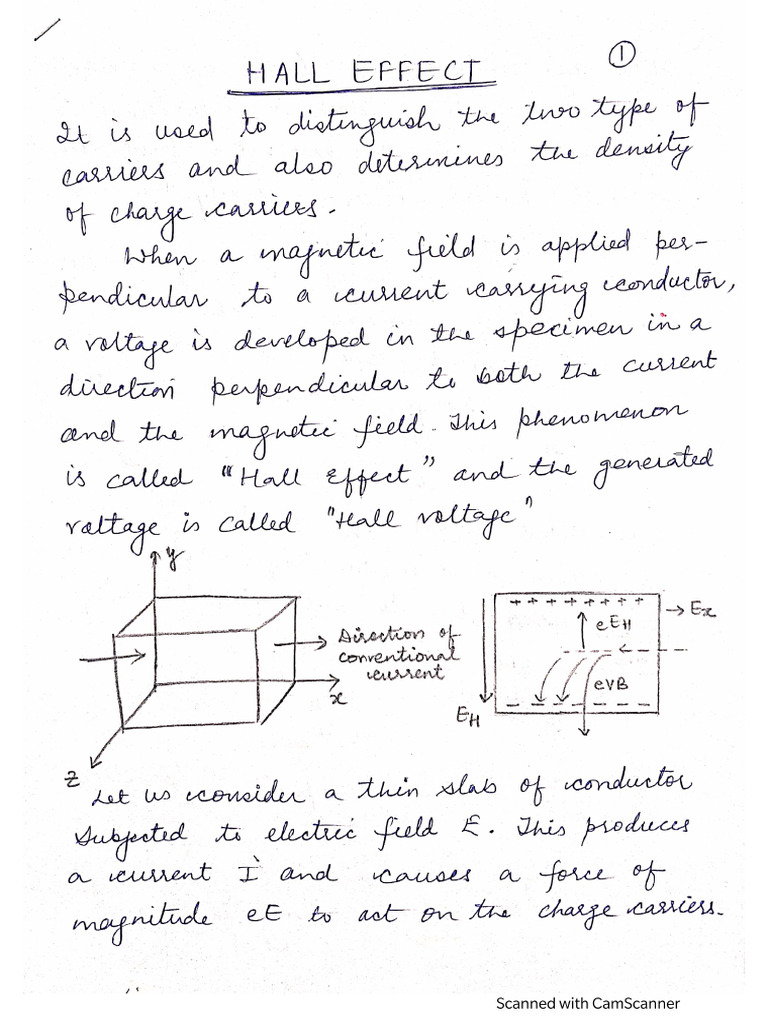 ①
HALL EFFECT
It is used to distinguish the two type of
carriers and also determines the density
of charge carriers.
When a magnetic field is applied per-
pendicular to a current carrying conductor,
a voltage is developed in the specimen in a
direction perpendicular to both the current
and the magnetic field. This phenomenon
is called "Hall Effect" and the generated
voltage is called "Hall voltage"
y
Direction of
conventional
current
x
z
+ + + + + + +
Ex
eEH
evB
EH
Let us consider a thin slab of conductor
subjected to electric field E. This produces
a current I and causes a force of
magnitude eE to act on the charge carriers.
Scanned with CamScanner